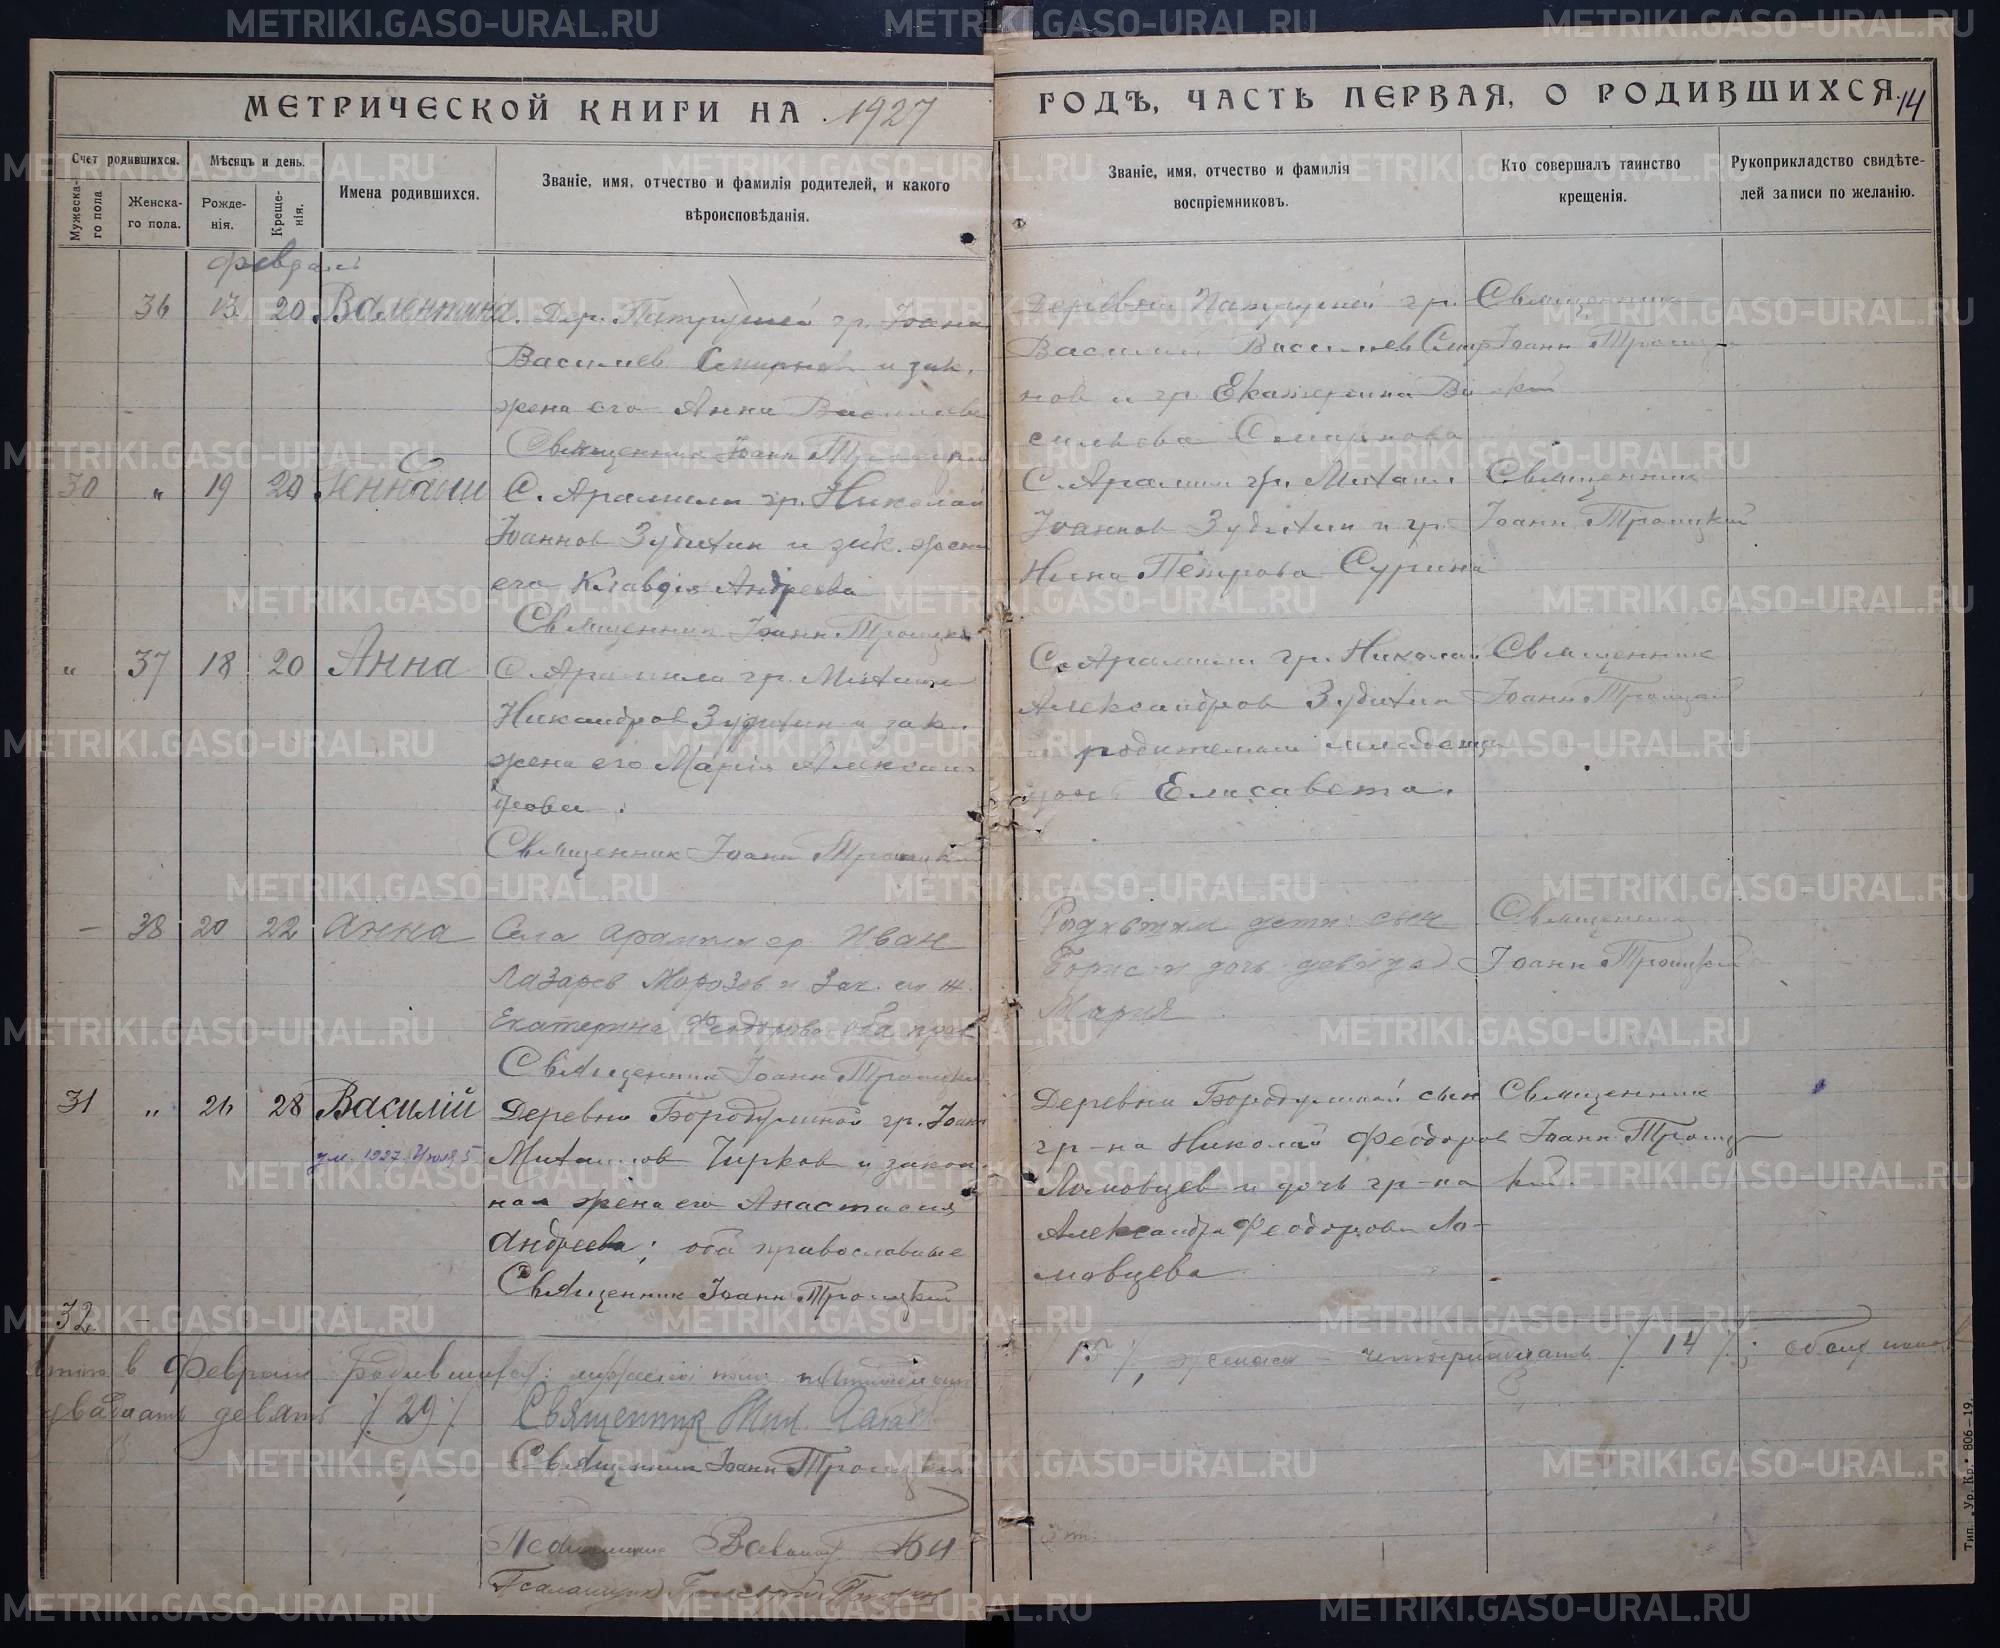 МЕТРИЧЕСКОЙ КНИГИ НА 1927
ГОДЪ, ЧАСТЬ ПЕРВАЯ, О РОДИВШИХСЯ.
14
Счет родившихся.
Мужеска-
го пола
Женска-
го пола.
Мѣсяцъ и день.
Рожде-
нія.
Креще-
нія.
Имена родившихся.
Званіе, имя, отчество и фамилія родителей, и какого
вѣроисповѣданія.
Званіе, имя, отчество и фамилія
воспріемниковъ.
Кто совершалъ таинство
крещенія.
Рукоприкладство свидѣте-
лей записи по желанію.
февраль
36 13 20 Валентина.
Дер. Патрушей гр. Іоанн
Васильев Смирнов и зак.
жена его Анна Васильева
Священник Іоанн Троицкий
Деревни Патрушей гр.
Василий Васильев Смир
нов и гр. Екатерина Ва
сильева Смирнова
Священник
Іоанн Троиц-
кий
30 " 19 20 Геннадий
С. Арамили гр. Николай
Іоаннов Зудихин и зак. жена
его Клавдія Андреева
Священник Іоанн Троицкий
С. Арамили гр. Михаил
Іоаннов Зудихин и гр.
Нина Петрова Сурина
Священник
Іоанн Троицкий
" 37 18 20 Анна
С. Арамили гр. Михаил
Никандров Зудихин и зак.
жена его Марія Алексан
дрова.
Священник Іоанн Троицкий
С. Арамили гр. Николай
Александров Зудихин
родителей младенца
дочь Елисавета.
Священник
Іоанн Троицкий
- 38 20 22 Анна
Села Арамили гр. Иван
Лазарев Морозов и Зак. его ж.
Екатерина Феодорова оба прав
Священник Іоанн Троицкий
дети: сын
Борис и дочь девица
Мария
Священник
Іоанн Троицкий
31 " 26 28 Василій
ум. 1927 Июля 5
Деревни Бородулиной гр. Іоанн
Михаилов Чирков и закон
ная жена его Анастасия
Андреева; оба православные
Священник Іоанн Троицкий
Деревни Бородулиной сын
гр-на Николай Феодоров
Ломовцев и дочь гр-на
Александра Феодорова Ло-
мовцева
Священник
Іоанн Троиц-
кий.
32 -
Итого в Феврале родившихся: мужеска пола пятнадцать
/15/, женска - четырнадцать /14/; обоего пола
двадцать девять /29/
Священник Мих.
Священник Іоанн Троицкий
Псаломщик
Тип. „Ур. Кр.“ 806—19.
METRIKI.GASO-URAL.RU